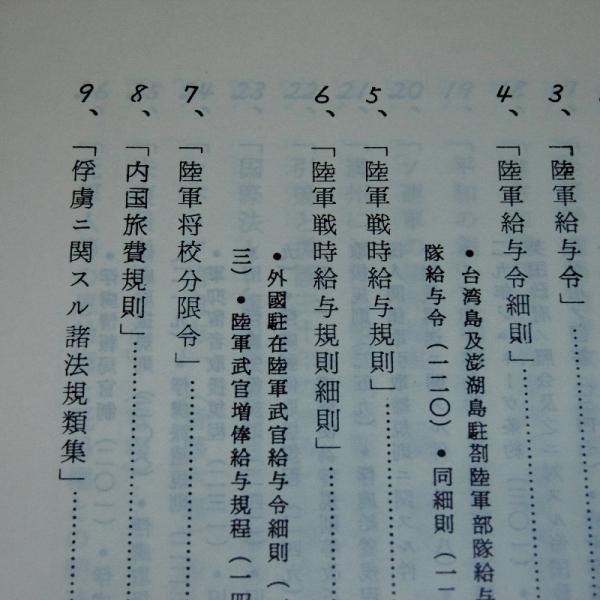 3、「陸軍給与令」
4、「陸軍給与令細則」
・台湾島及澎湖島駐剳陸軍部隊給与
隊給与令(一二〇)・同細則(一
5、「陸軍戦時給与規則」
6、「陸軍戦時給与規則細則」
・外國駐在陸軍武官給与令細則(
三)・陸軍武官増俸給与規程(一四
7、「陸軍将校分限令」
8、「内国旅費規則」
9、「俘虜ニ関スル諸法規類集」